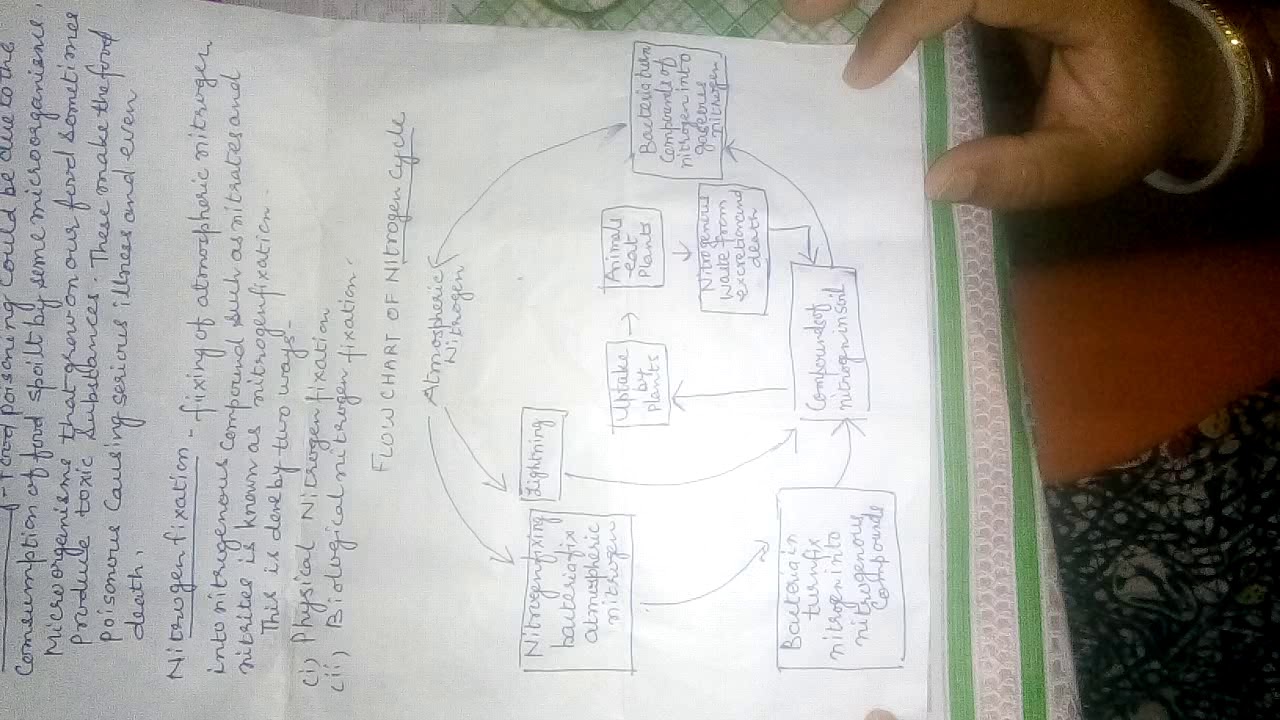 - Food poisoning could be due to the
Consumption of food spoilt by some microorganisms.
Microorganisms that grow on our food sometimes
produce toxic substances. These make the food
poisonous causing serious illness and even
death.
Nitrogen fixation - fixing of atmospheric nitrogen
into nitrogenous compound such as nitrates and
nitrites is known as nitrogen fixation.
This is done by two ways-
(i) Physical Nitrogen fixation
(ii) Biological nitrogen fixation.
FLOW CHART OF Nitrogen Cycle
Atmospheric
Nitrogen
Nitrogen fixing
bacteria fix
atmospheric
nitrogen
Lightning
Uptake
by
Plants
Animals
eat
Plants
Bacteria turn
compounds of
nitrogen into
gaseous
nitrogen
Nitrogenous
waste from
excretion and
death
Bacteria in
turn fix
nitrogen into
nitrogenous
compounds
Compounds of
nitrogen in soil